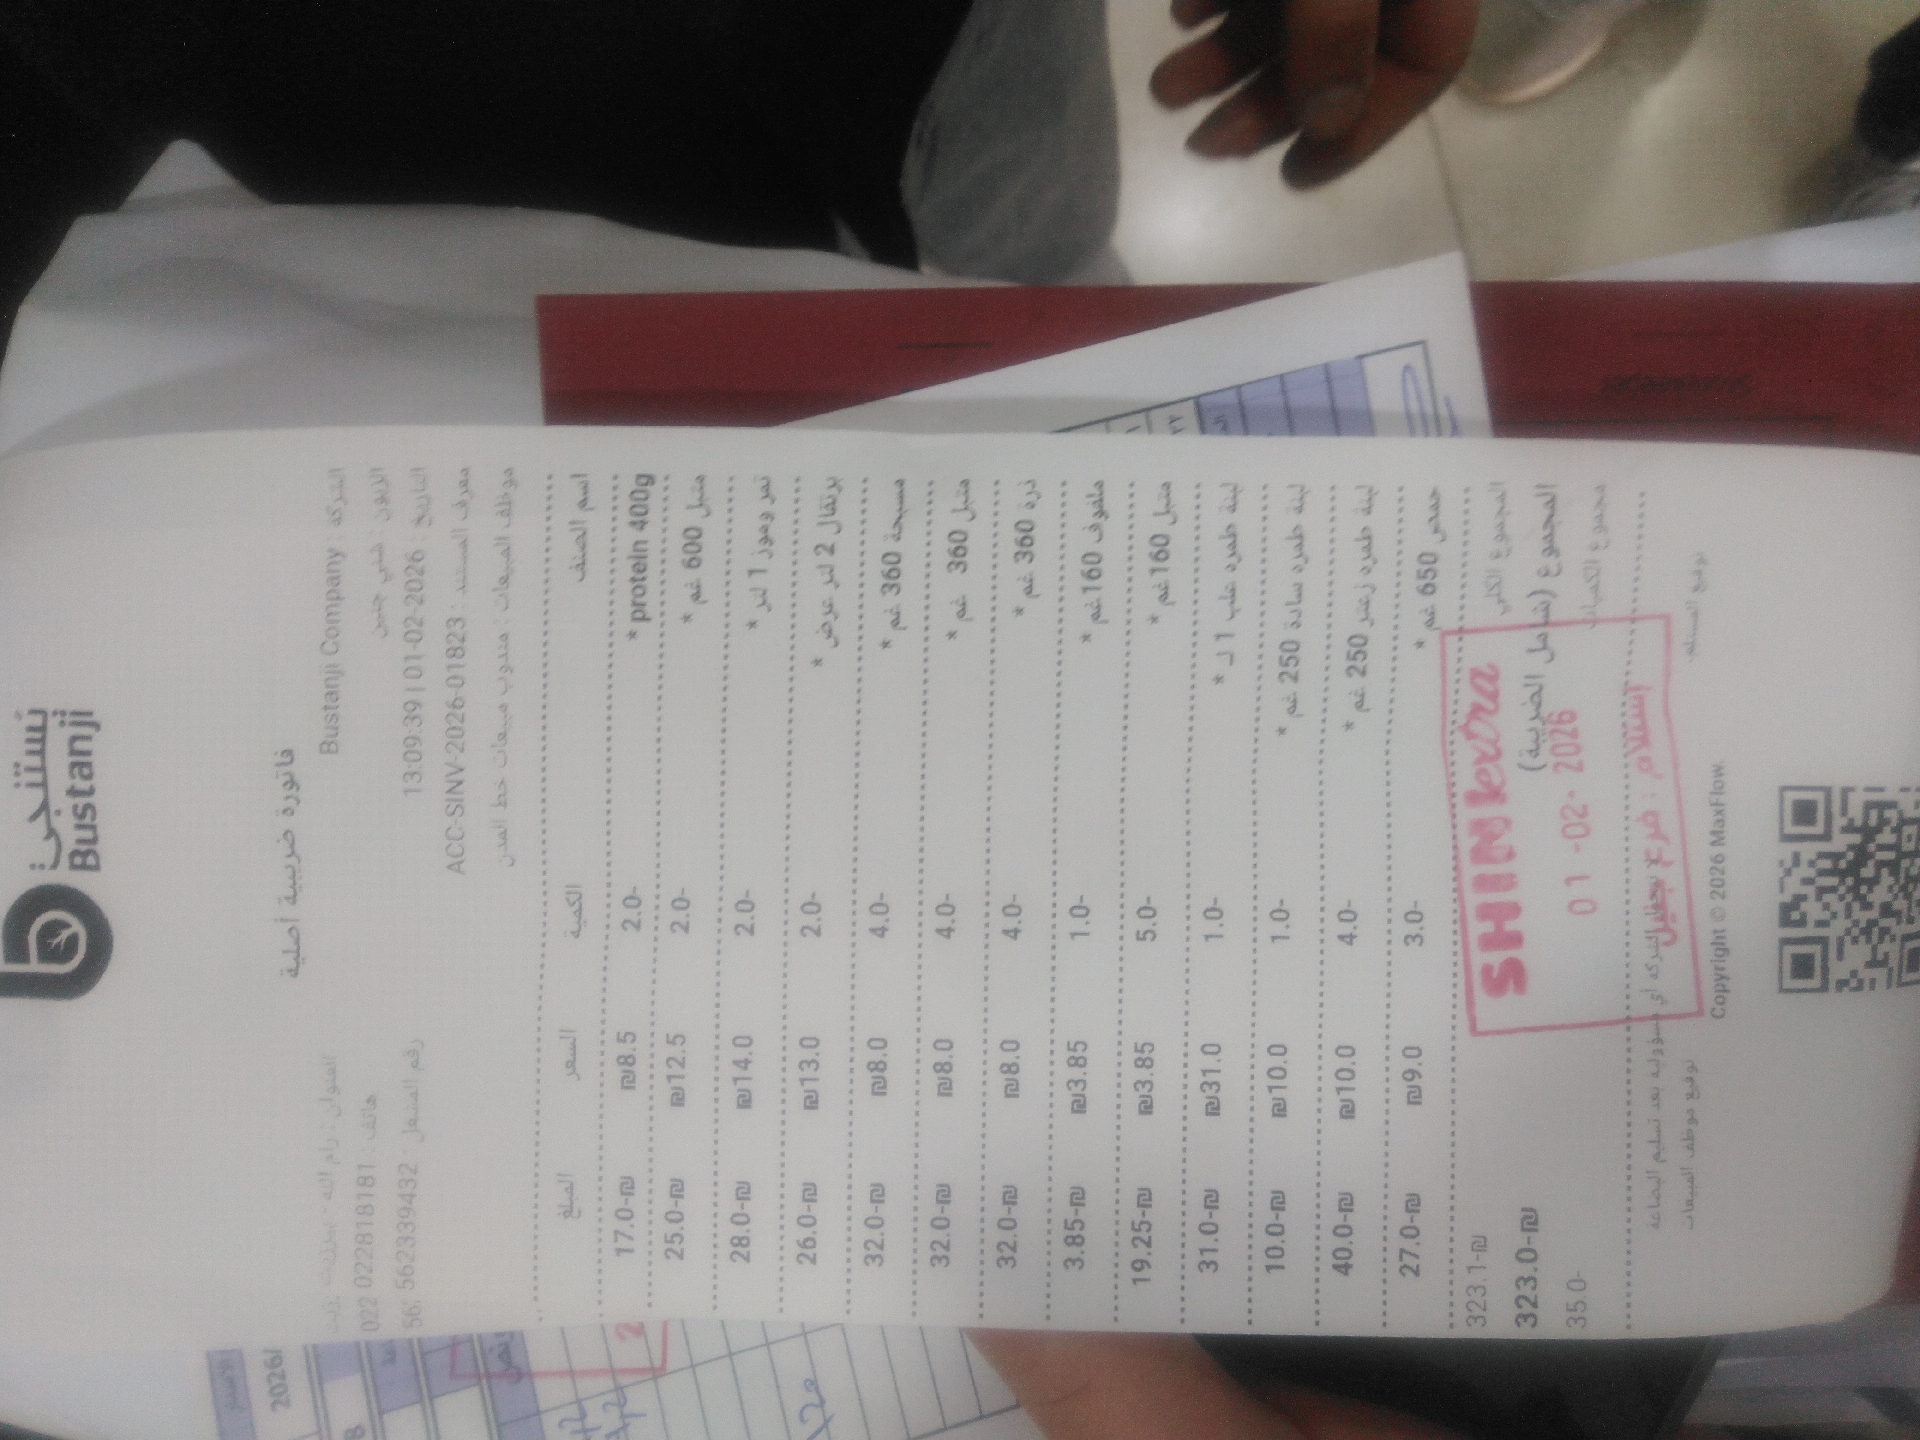 بُستنجي
Bustanji
فاتورة ضريبية أصلية
الشركة : Bustanji Company
العنوان : رام الله
الزبون : شني جنين
هاتف : 022 022818181
التاريخ : 2026-02-01 | 13:09:39
رقم المشتغل : 562339432
معرف المستند : ACC-SINV-2026-01823
موظف المبيعات : مندوب مبيعات خط المدن
اسم الصنف الكمية السعر المبلغ
* protein 400g 2.0- ₪8.5 17.0-₪
متبل 600 غم * 2.0- ₪12.5 25.0-₪
تمر وموز 1 لتر * 2.0- ₪14.0 28.0-₪
برتقال 2 لتر عرض * 2.0- ₪13.0 26.0-₪
مسبحة 360 غم * 4.0- ₪8.0 32.0-₪
متبل 360 غم * 4.0- ₪8.0 32.0-₪
ذرة 360 غم * 4.0- ₪8.0 32.0-₪
ملفوف 160غم * 1.0- ₪3.85 3.85-₪
متبل 160غم * 5.0- ₪3.85 19.25-₪
لبنة طمره علب 1 ك * 1.0- ₪31.0 31.0-₪
لبنة طمره سادة 250 غم * 1.0- ₪10.0 10.0-₪
لبنة طمره زعتر 250 غم * 4.0- ₪10.0 40.0-₪
حمص 650 غم * 3.0- ₪9.0 27.0-₪
المجموع الكلي 323.1-₪
المجموع (شامل الضريبة) 323.0-₪
مجموع الكميات 35.0-
SHINI extra
01 -02- 2026
استلام : فرع
الشركة أي مسؤولية بعد تسليم البضاعة
توقيع المستلم
توقيع موظف المبيعات
Copyright © 2026 MaxFlow.